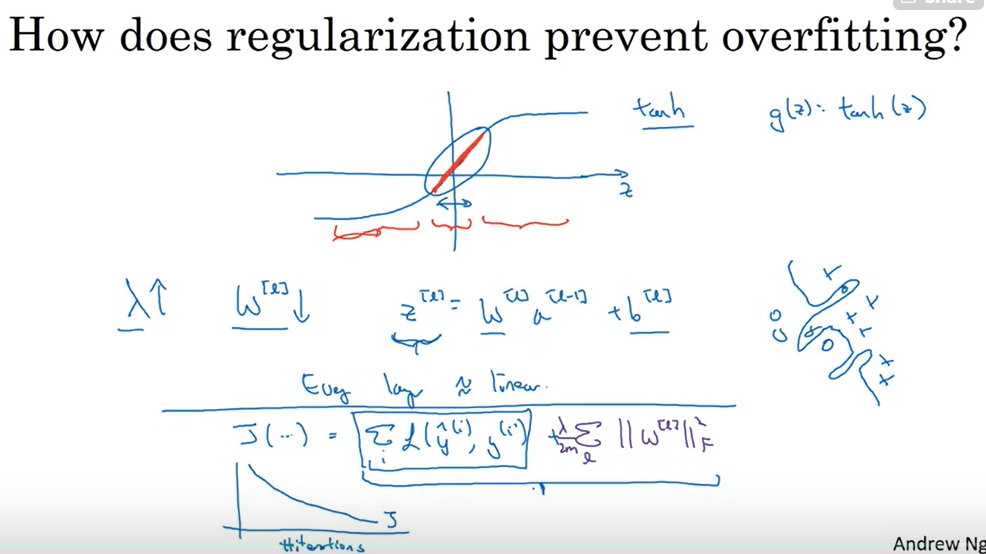 Share
How does regularization prevent overfitting?
tanh g(z) = tanh(z)
z
λ↑ W^[l]↓ z^[l] = W^[l] a^[l-1] + b^[l]
Every layer ≈ linear.
J(...) = Σ_i L(ŷ^(i), y^(i)) + λ/2m Σ_l ||W^[l]||²_F
J
# iterations
Andrew Ng